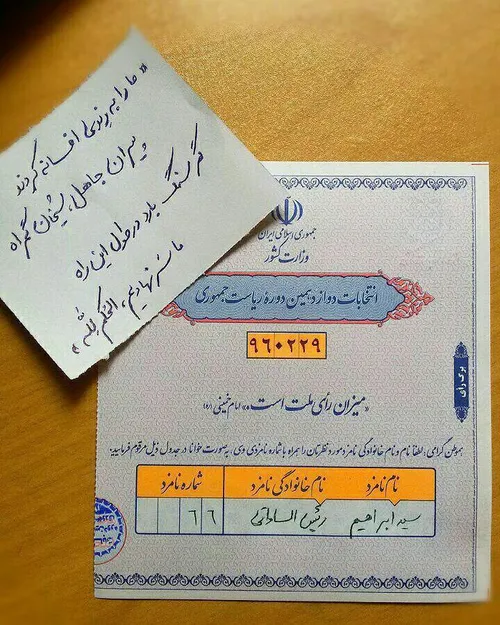 «ما را به رندی افسانه کردند
پیران جاهل، شیخان گمراه
گر سنگ بارد در طول این راه
ما سر نهادیم، الحکم لله»
جمهوری اسلامی ایران
وزارت کشور
انتخابات دوازدهمین دوره ریاست جمهوری
۹۶۰۲۲۹
«میزان رأی ملت است.» امام خمینی (ره)
برگ رأی
هموطن گرامی، لطفا نام و نام خانوادگی نامزد مورد نظرتان را همراه با شماره نامزدی وی، به صورت خوانا در جدول ذیل مرقوم فرمایید:
نام نامزد نام خانوادگی نامزد شماره نامزد
سید ابراهیم رئیس الساداتی ۶۶